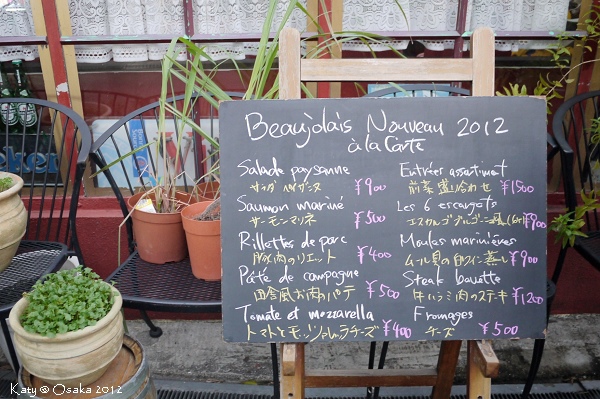 Beaujolais Nouveau 2012
à la Carte
Salade paysanne
サラダ ペイザンヌ ¥900
Saumon mariné
サーモンマリネ ¥500
Rillettes de porc
豚肉のリエット ¥400
Pâte de campagne
田舎風お肉のパテ ¥500
Tomate et mozzarella
トマトとモッツァレッラチーズ ¥400
Entrées assortiment
前菜盛り合わせ ¥1500
Les 6 escargots
エスカルゴブルゴーニュ風 (6ヶ) ¥900
Moules marinières
ムール貝の白ワイン蒸し ¥900
Steak bavette
牛ハラミ肉のステーキ ¥1200
Fromages
チーズ ¥500
Katy @ Osaka 2012